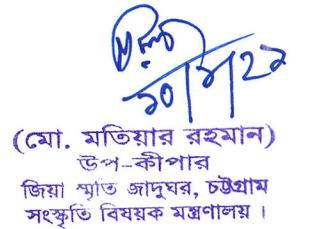 (মো. মতিয়ার রহমান)
উপ-কীপার
জিয়া স্মৃতি জাদুঘর, চট্টগ্রাম
সংস্কৃতি বিষয়ক মন্ত্রণালয়।